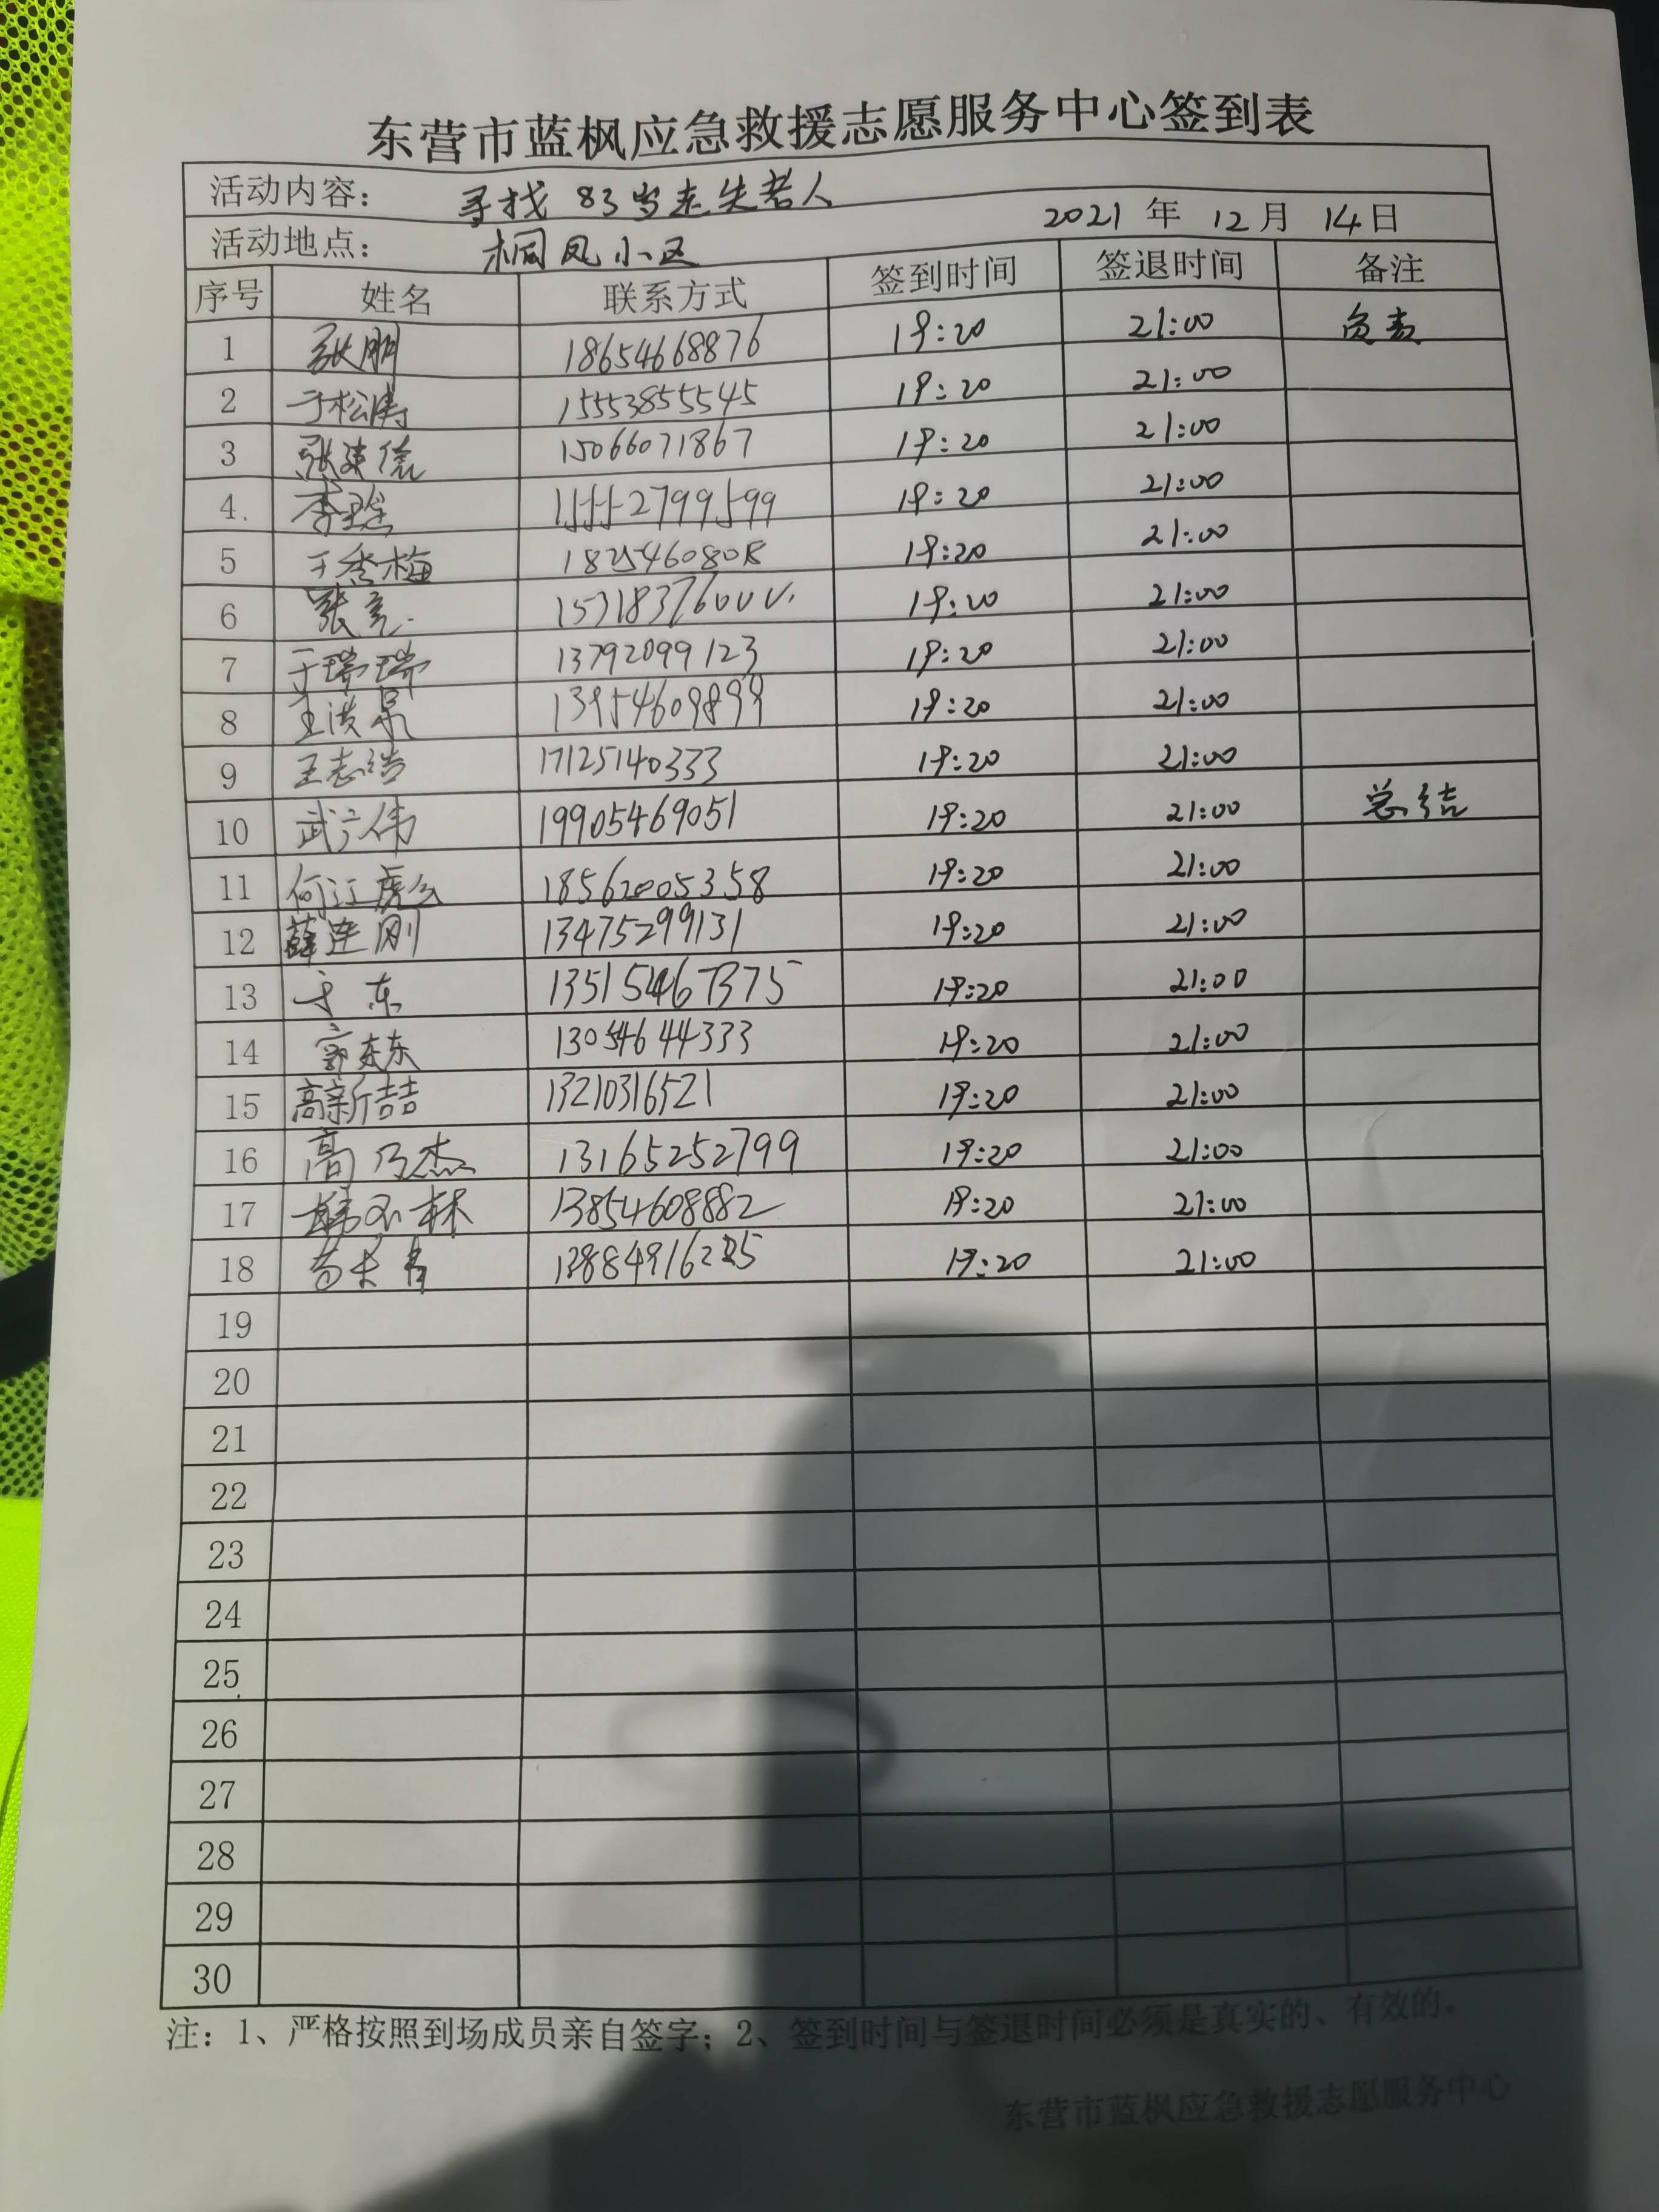 东营市蓝枫应急救援志愿服务中心签到表
活动内容： 寻找 83岁走失老人
活动地点： 桐凤小区 2021 年 12 月 14 日
序号 姓名 联系方式 签到时间 签退时间 备注
1 张朋 18654668876 19:20 21:00 负责
2 于松涛 15553855545 19:20 21:00
3 张建信 15066071867 19:20 21:00
4. 19:20 21:00
5 于秀梅 18254608018 19:20 21:00
6 张亮 19:20 21:00
7 于瑞瑞 13792099123 19:20 21:00
8 王洪泉 13954609899 19:20 21:00
9 王志浩 17125140333 19:20 21:00
10 武广伟 19905469051 19:20 21:00 总结
11 何江 18562005358 19:20 21:00
12 薛连刚 13475299131 19:20 21:00
13 于东 13515467375 19:20 21:00
14 郭东东 13054644333 19:20 21:00
15 高新喆 13210316521 19:20 21:00
16 高乃杰 13165252799 19:20 21:00
17 13854608882 19:20 21:00
18 19:20 21:00
19
20
21
22
23
24
25
26
27
28
29
30
注：1、严格按照到场成员亲自签字；2、签到时间与签退时间必须是真实的、有效的。
东营市蓝枫应急救援志愿服务中心